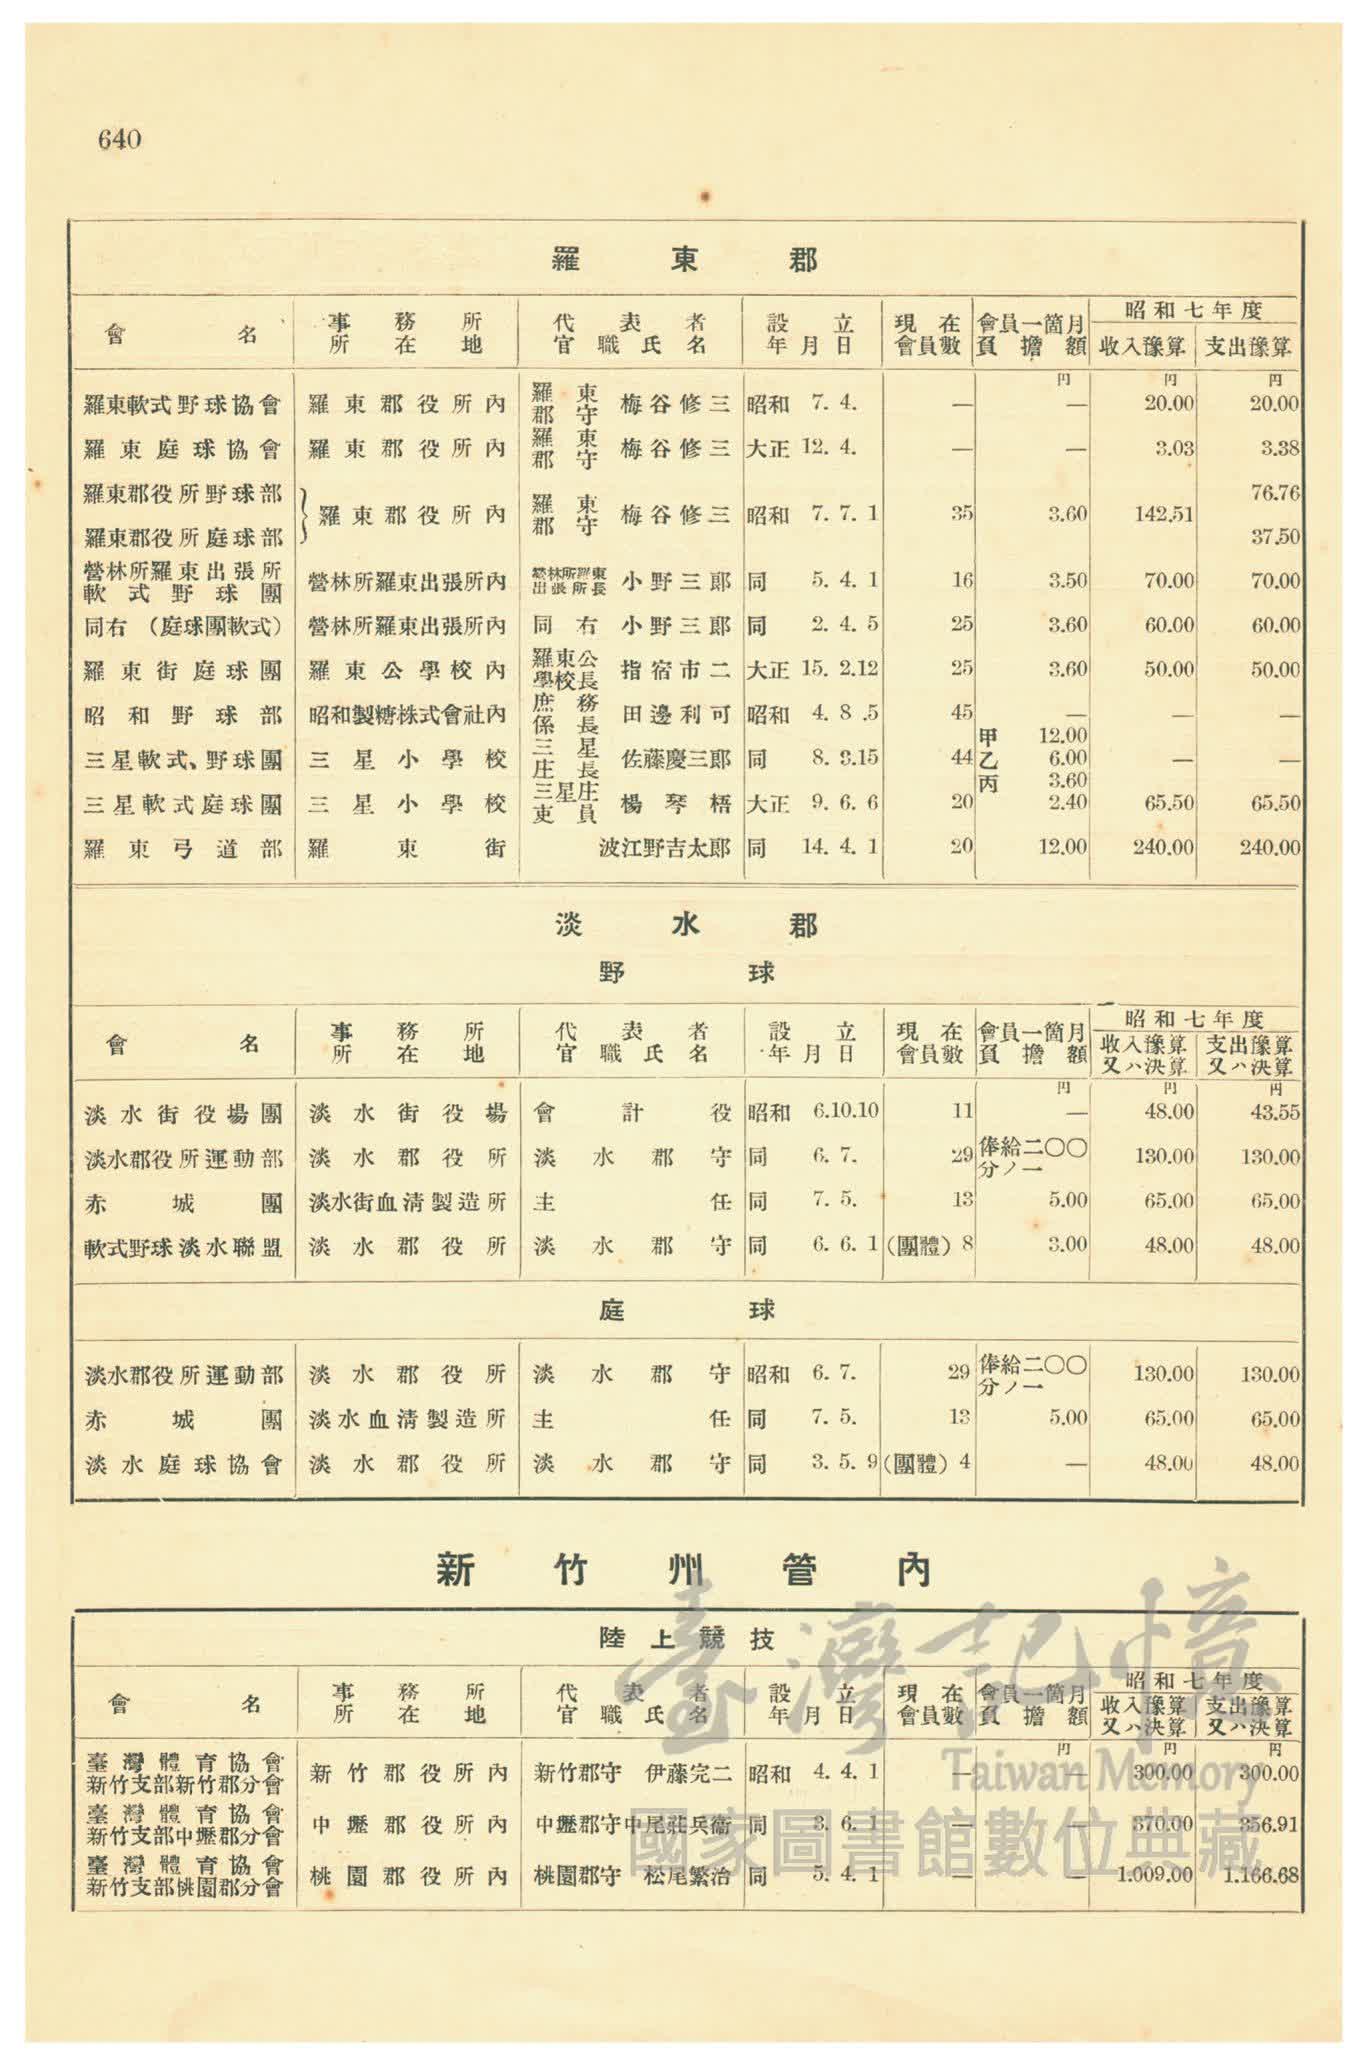 640
羅東郡
會名 事務所所在地 代表者官職氏名 設立年月日 現在會員數 會員一箇月負擔額 昭和七年度 收入豫算 支出豫算
円 円 円
羅東軟式野球協會 羅東郡役所內 羅東郡守 梅谷修三 昭和 7. 4. — — 20.00 20.00
羅東庭球協會 羅東郡役所內 羅東郡守 梅谷修三 大正 12. 4. — — 3.03 3.38
羅東郡役所野球部 76.76
} 羅東郡役所內 羅東郡守 梅谷修三 昭和 7. 7. 1 35 3.60 142.51
羅東郡役所庭球部 37.50
營林所羅東出張所軟式野球團 營林所羅東出張所內 營林所羅東出張所長 小野三郎 同 5. 4. 1 16 3.50 70.00 70.00
同右（庭球團軟式） 營林所羅東出張所內 同右 小野三郎 同 2. 4. 5 25 3.60 60.00 60.00
羅東街庭球團 羅東公學校內 羅東公學校長 指宿市二 大正 15. 2.12 25 3.60 50.00 50.00
昭和野球部 昭和製糖株式會社內 庶務係長 田邊利可 昭和 4. 8 .5 45 — — —
三星軟式、野球團 三星小學校 三星庄長 佐藤慶三郎 同 8. 3.15 44 甲 12.00 乙 6.00 丙 3.60 — —
三星軟式庭球團 三星小學校 三星庄吏員 楊琴梧 大正 9. 6. 6 20 2.40 65.50 65.50
羅東弓道部 羅東街 波江野吉太郎 同 14. 4. 1 20 12.00 240.00 240.00
淡水郡
野球
會名 事務所所在地 代表者官職氏名 設立年月日 現在會員數 會員一箇月負擔額 昭和七年度 收入豫算又ハ決算 支出豫算又ハ決算
円 円 円
淡水街役場團 淡水街役場 會計役 昭和 6.10.10 11 — 48.00 43.55
淡水郡役所運動部 淡水郡役所 淡水郡守 同 6. 7. 29 俸給二〇〇分ノ一 130.00 130.00
赤城團 淡水街血淸製造所 主任 同 7. 5. 13 5.00 65.00 65.00
軟式野球淡水聯盟 淡水郡役所 淡水郡守 同 6. 6. 1 (團體) 8 3.00 48.00 48.00
庭球
淡水郡役所運動部 淡水郡役所 淡水郡守 昭和 6. 7. 29 俸給二〇〇分ノ一 130.00 130.00
赤城團 淡水血淸製造所 主任 同 7. 5. 13 5.00 65.00 65.00
淡水庭球協會 淡水郡役所 淡水郡守 同 3. 5. 9 (團體) 4 — 48.00 48.00
新竹州管內
陸上競技
會名 事務所所在地 代表者官職氏名 設立年月日 現在會員數 會員一箇月負擔額 昭和七年度 收入豫算又ハ決算 支出豫算又ハ決算
円 円 円
臺灣體育協會新竹支部新竹郡分會 新竹郡役所內 新竹郡守 伊藤完二 昭和 4. 4. 1 — — 300.00 300.00
臺灣體育協會新竹支部中壢郡分會 中壢郡役所內 中壢郡守 中尾莊兵衞 同 3. 6. 1 — — 370.00 356.91
臺灣體育協會新竹支部桃園郡分會 桃園郡役所內 桃園郡守 松尾繁治 同 5. 4. 1 — — 1.009.00 1.166.68
臺灣記憶
Taiwan Memory
國家圖書館數位典藏